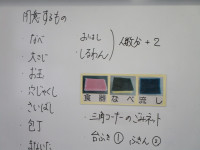 用意するもの
なべ
大さじ
お玉
穴じゃくし
さいばし
包丁
まないた
おはし
しるわん
人数分+2
食器 なべ 流し
・三角コーナーのごみネット
台ふき ① ふきん ②